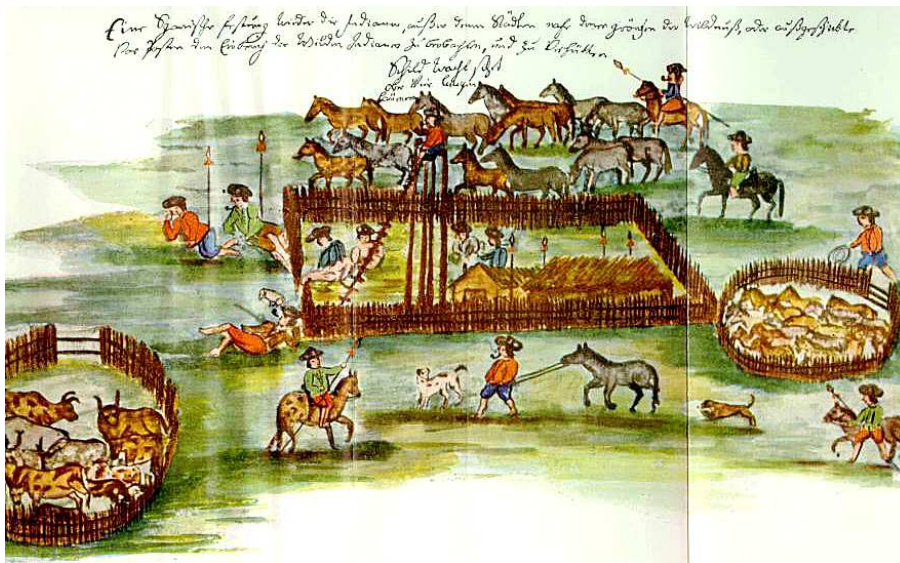 Eine Spanische festung wieder die Indianer, außer denen Städten nach denen gränzen der Wildnuß, oder
Vor Posten den Einbruch der Wilden Indianer zu beobachten, und zu Verhütten
Schild Wacht sizt
Vier langen
bäumen